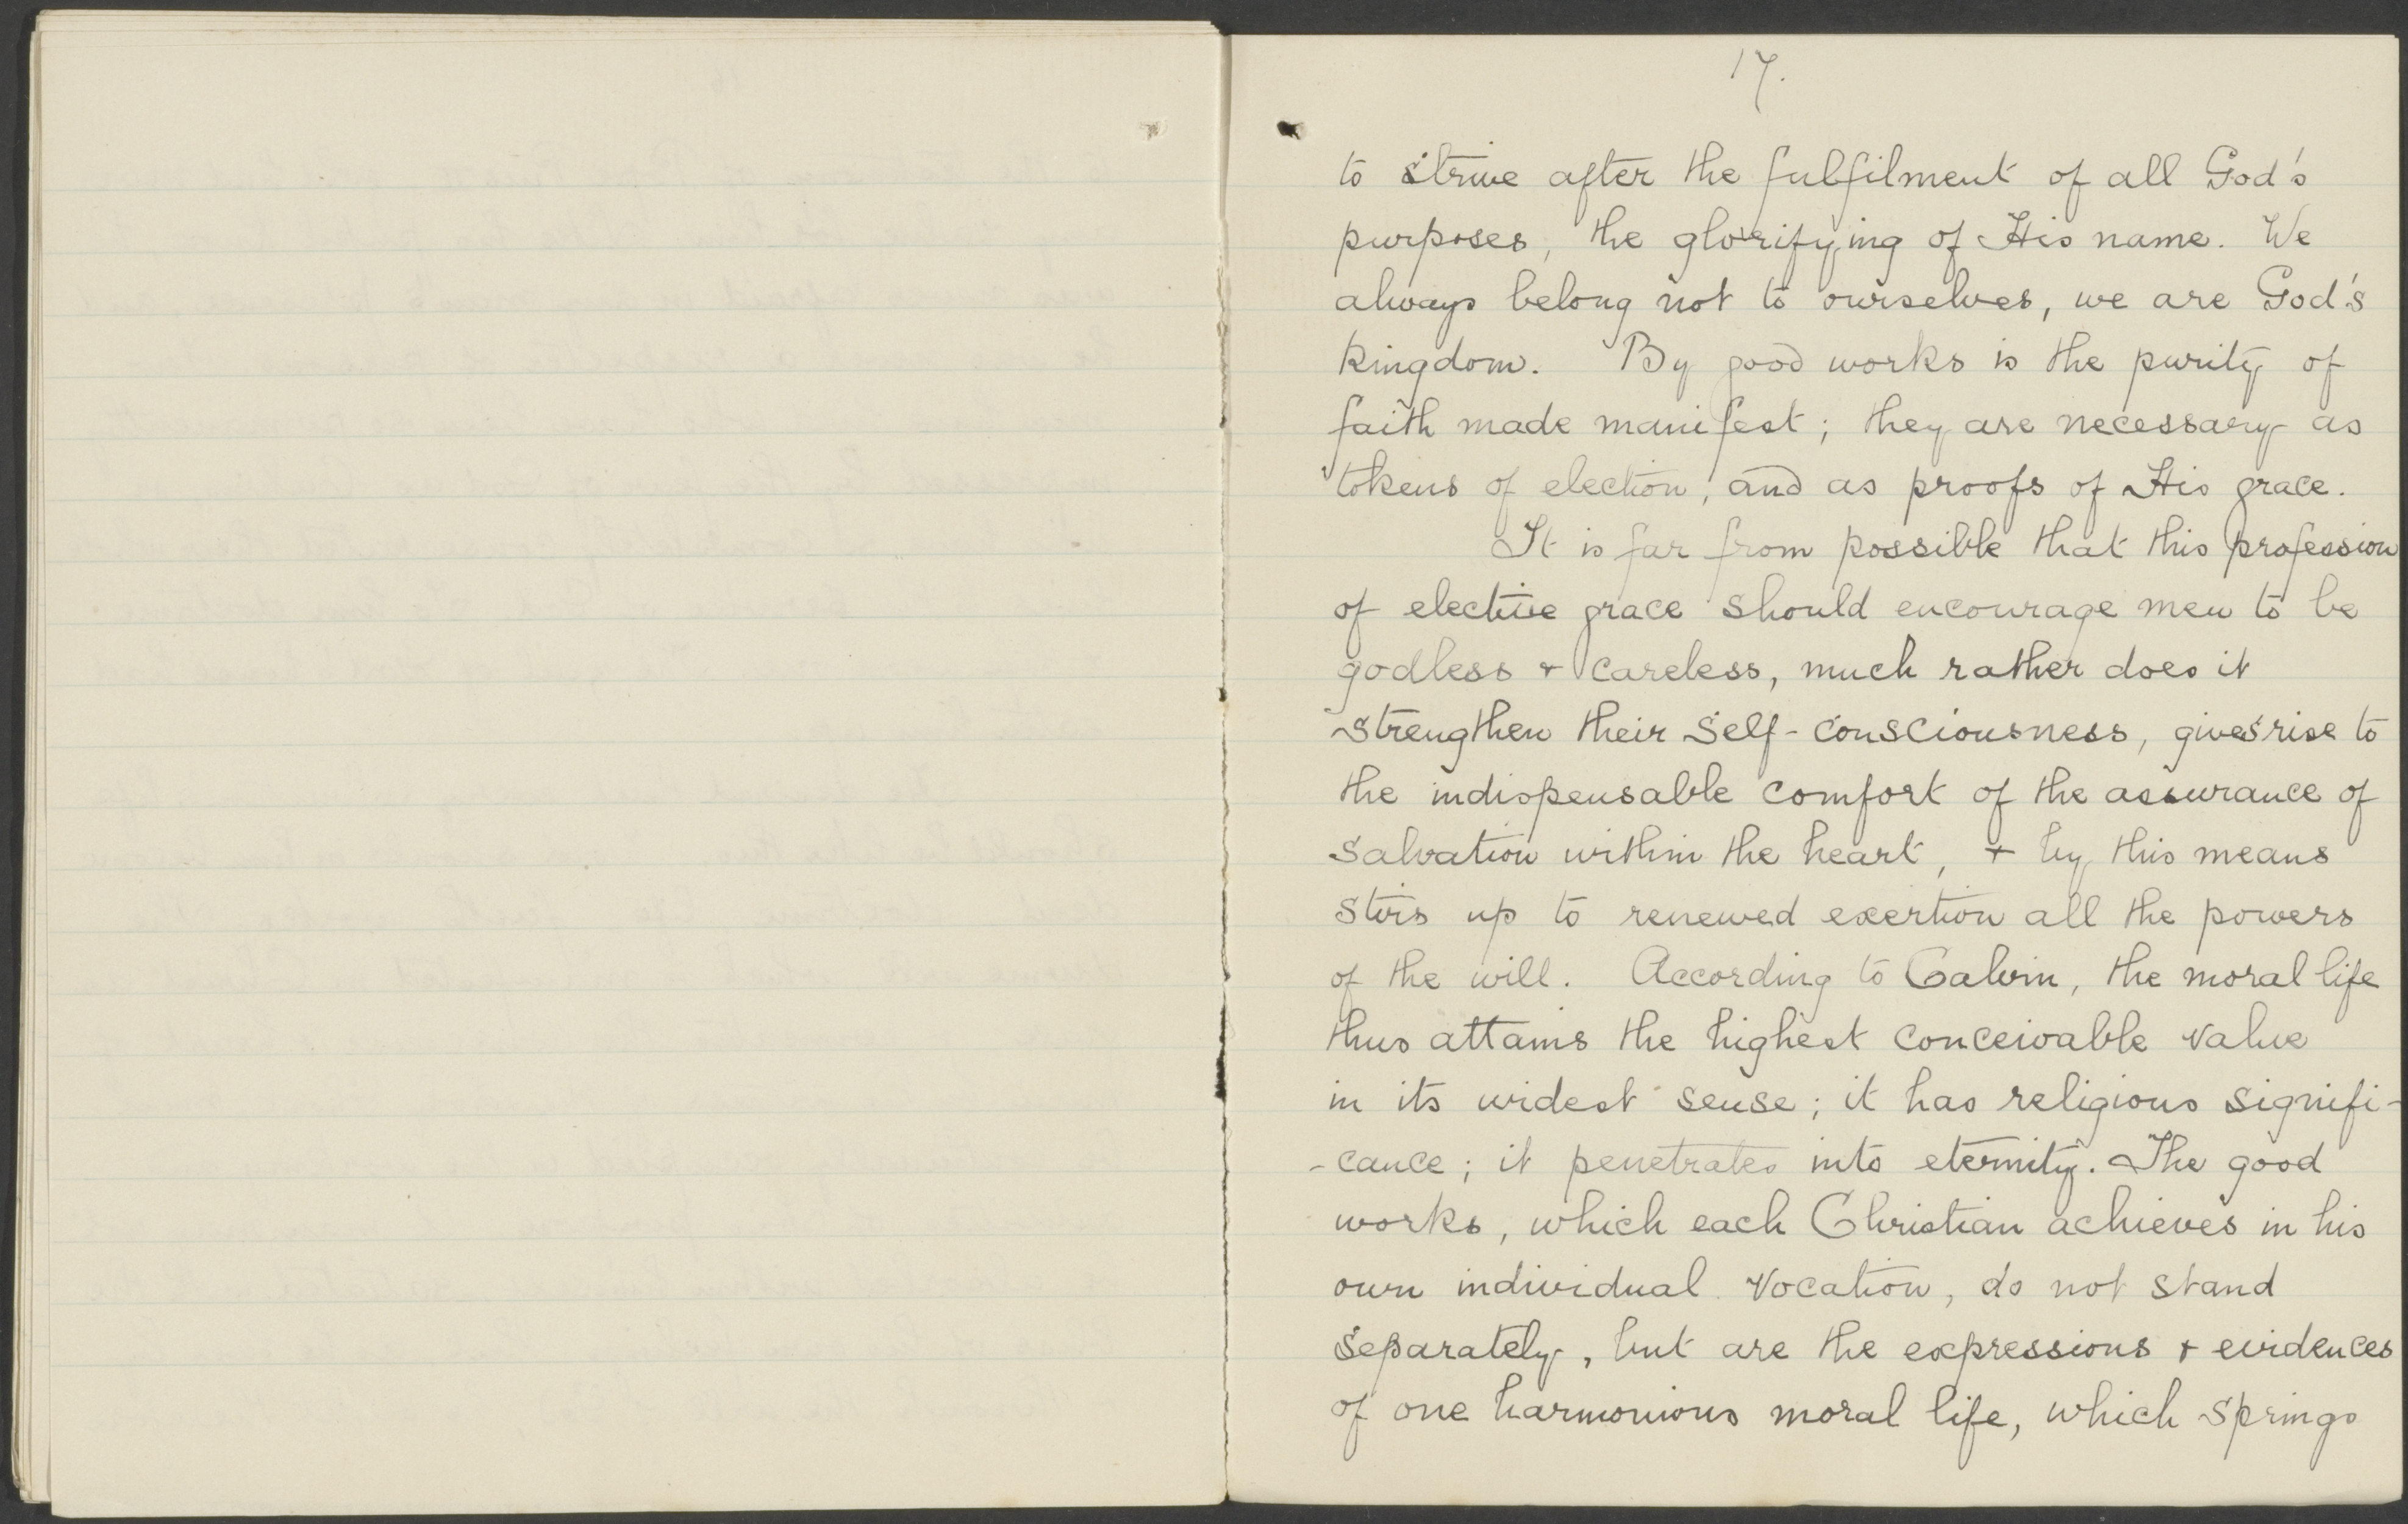 17.
to strive after the fulfilment of all God's
purposes, the glorifying of His name. We
always belong not to ourselves, we are God's
kingdom. By good works is the purity of
faith made manifest; they are necessary as
tokens of election, and as proofs of His grace.
It is far from possible that this profession
of elective grace should encourage men to be
godless + careless, much rather does it
strengthen their self-consciousness, gives rise to
the indispensable comfort of the assurance of
salvation within the heart, + by this means
stirs up to renewed exertion all the powers
of the will. According to Calvin, the moral life
thus attains the highest conceivable value
in its widest sense; it has religious signifi-
-cance; it penetrates into eternity. The good
works, which each Christian achieves in his
own individual vocation, do not stand
separately, but are the expressions + evidences
of one harmonious moral life, which springs